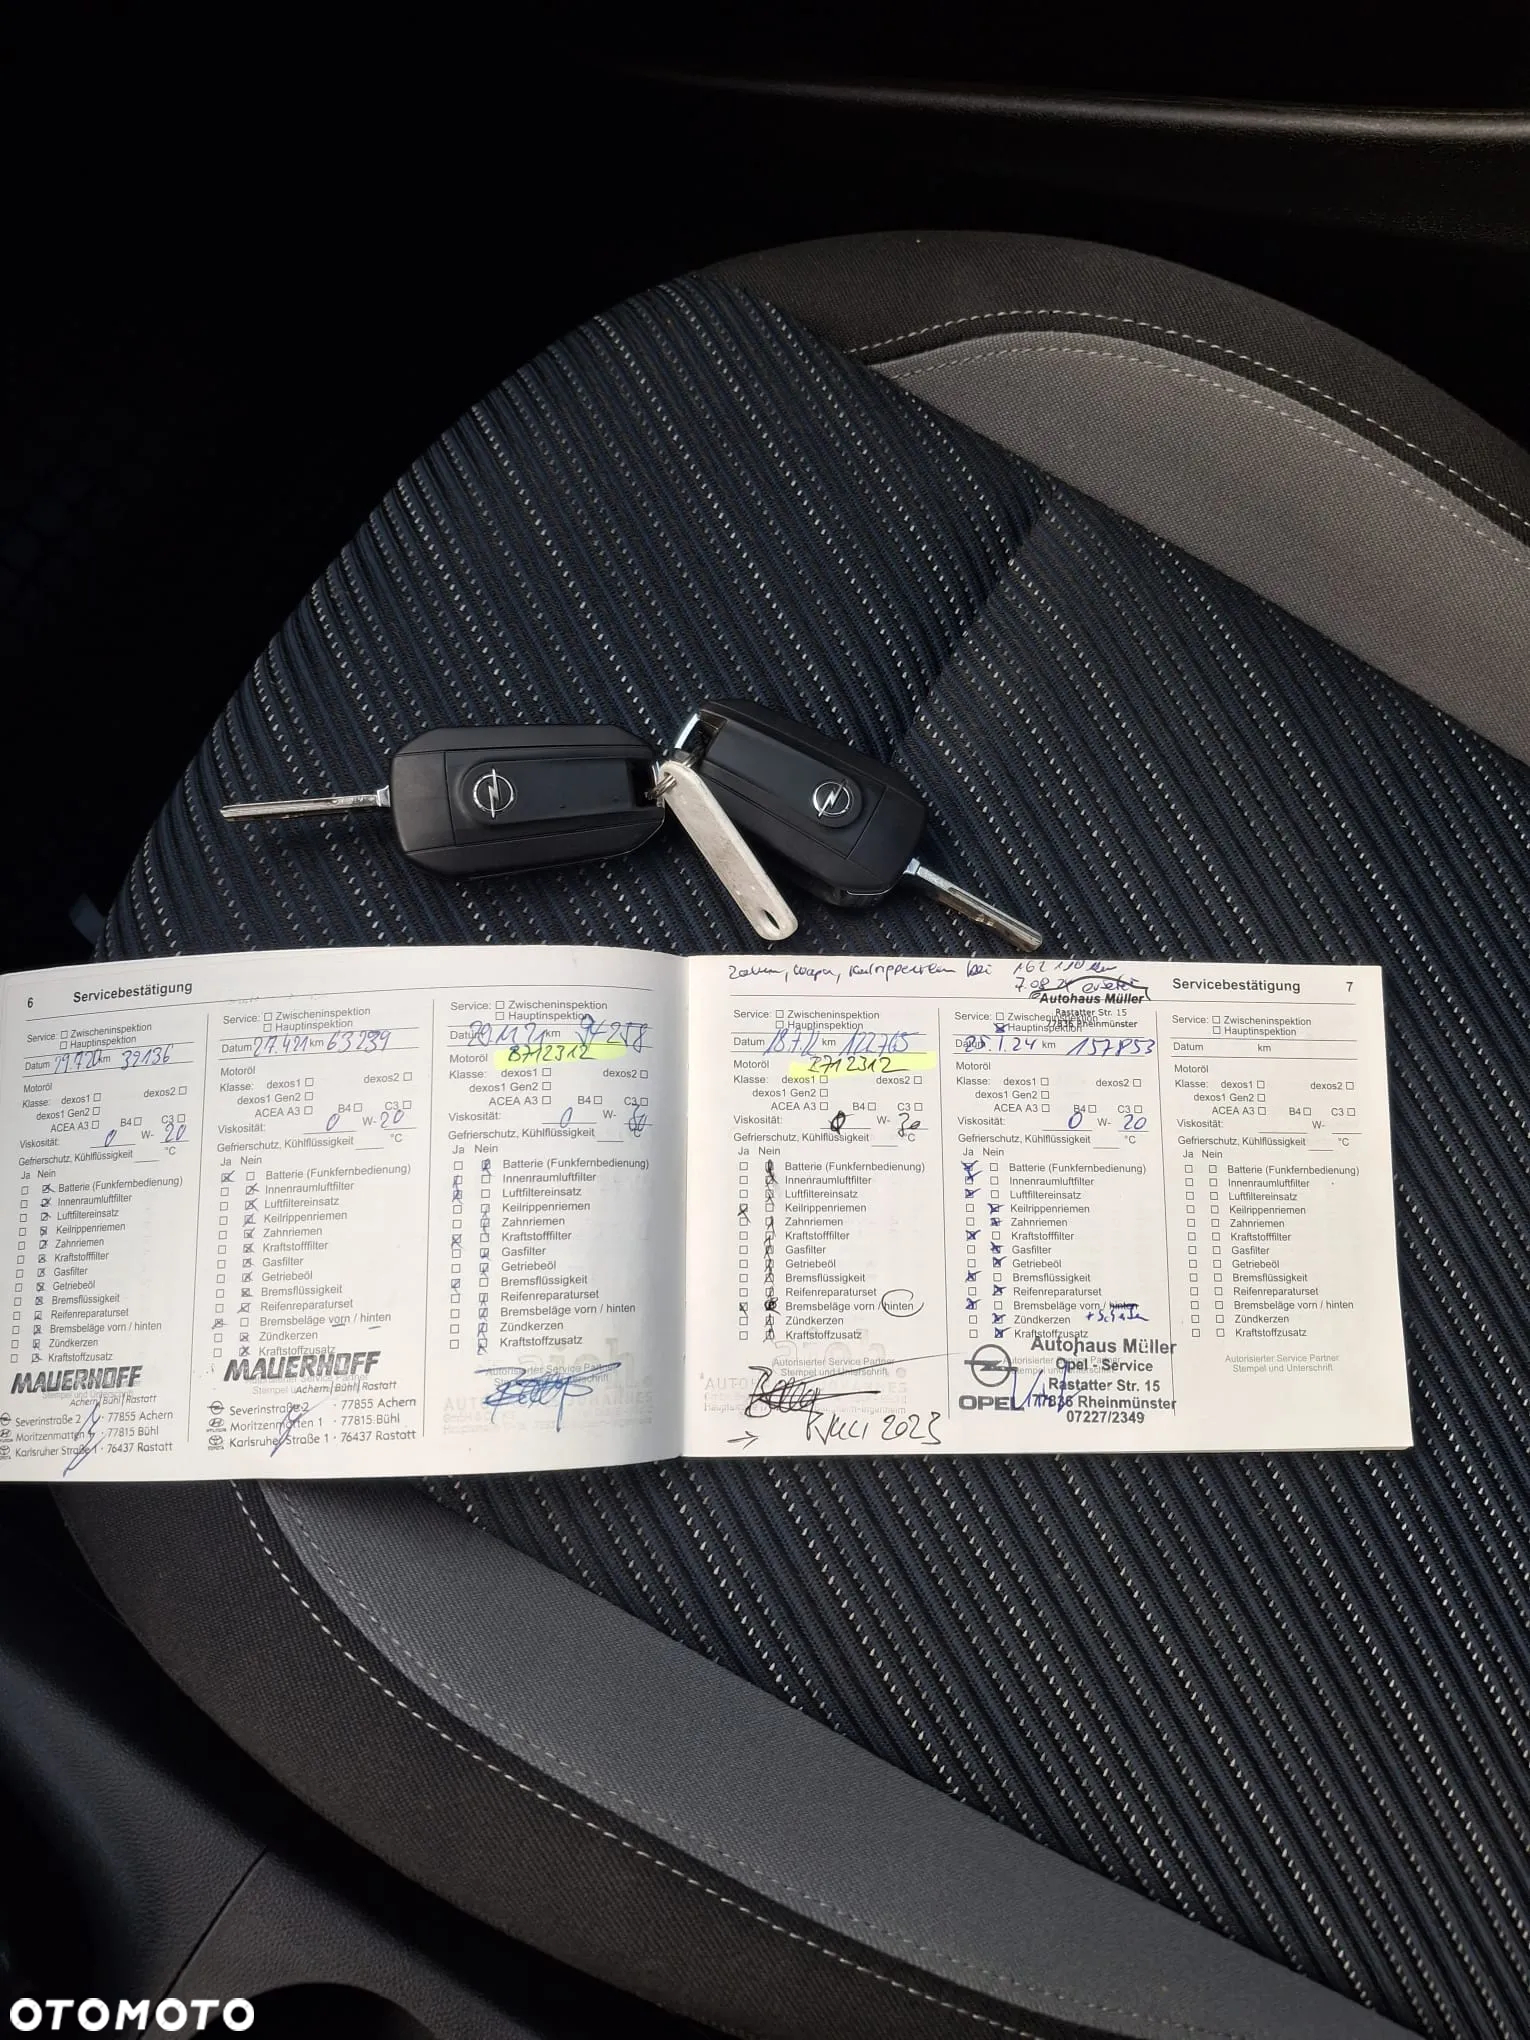 6 Servicebestätigung
Service: Zwischeninspektion
Hauptinspektion
Datum 29.7.20 km 32136
Motoröl
Klasse: dexos1 dexos2
dexos1 Gen2
ACEA A3 B4 C3
Viskosität: 0 W- 20
Gefrierschutz, Kühlflüssigkeit °C
Ja Nein
Batterie (Funkfernbedienung)
Innenraumluftfilter
Luftfiltereinsatz
Keilrippenriemen
Zahnriemen
Kraftstofffilter
Gasfilter
Getriebeöl
Bremsflüssigkeit
Reifenreparaturset
Bremsbeläge vorn / hinten
Zündkerzen
Kraftstoffzusatz
MAUERHOFF
Achern/Bühl/Rastatt
Severinstraße 2 · 77855 Achern
Moritzenmatten 1 · 77815 Bühl
Karlsruher Straße 1 · 76437 Rastatt
Service: Zwischeninspektion
Hauptinspektion
Datum 27.4.21 km 63239
Motoröl
Klasse: dexos1 dexos2
dexos1 Gen2
ACEA A3 B4 C3
Viskosität: 0 W- 20
Gefrierschutz, Kühlflüssigkeit °C
Ja Nein
Batterie (Funkfernbedienung)
Innenraumluftfilter
Luftfiltereinsatz
Keilrippenriemen
Zahnriemen
Kraftstofffilter
Gasfilter
Getriebeöl
Bremsflüssigkeit
Reifenreparaturset
Bremsbeläge vorn / hinten
Zündkerzen
Kraftstoffzusatz
MAUERHOFF
Achern/Bühl/Rastatt
Severinstraße 2 · 77855 Achern
Moritzenmatten 1 · 77815 Bühl
Karlsruher Straße 1 · 76437 Rastatt
Service: Zwischeninspektion
Hauptinspektion
Datum 29.11.21 km 94258
Motoröl B712312
Klasse: dexos1 dexos2
dexos1 Gen2
ACEA A3 B4 C3
Viskosität: 0 W-
Gefrierschutz, Kühlflüssigkeit °C
Ja Nein
Batterie (Funkfernbedienung)
Innenraumluftfilter
Luftfiltereinsatz
Keilrippenriemen
Zahnriemen
Kraftstofffilter
Gasfilter
Getriebeöl
Bremsflüssigkeit
Reifenreparaturset
Bremsbeläge vorn / hinten
Zündkerzen
Kraftstoffzusatz
Autorisierter Service Partner
Servicebestätigung 7
Keilrippenriemen bei
7.08.24 ersetzt
Autohaus Müller
Rastatter Str. 15
77836 Rheinmünster
Service: Zwischeninspektion
Hauptinspektion
Datum km 122765
Motoröl B712312
Klasse: dexos1 dexos2
dexos1 Gen2
ACEA A3 B4 C3
Viskosität: 0 W- 30
Gefrierschutz, Kühlflüssigkeit °C
Ja Nein
Batterie (Funkfernbedienung)
Innenraumluftfilter
Luftfiltereinsatz
Keilrippenriemen
Zahnriemen
Kraftstofffilter
Gasfilter
Getriebeöl
Bremsflüssigkeit
Reifenreparaturset
Bremsbeläge vorn / hinten
Zündkerzen
Kraftstoffzusatz
Autorisierter Service Partner
Stempel und Unterschrift
2023
Service: Zwischeninspektion
Hauptinspektion
Datum 25.1.24 km 157853
Motoröl
Klasse: dexos1 dexos2
dexos1 Gen2
ACEA A3 B4 C3
Viskosität: 0 W- 20
Gefrierschutz, Kühlflüssigkeit °C
Ja Nein
Batterie (Funkfernbedienung)
Innenraumluftfilter
Luftfiltereinsatz
Keilrippenriemen
Zahnriemen
Kraftstofffilter
Gasfilter
Getriebeöl
Bremsflüssigkeit
Reifenreparaturset
Bremsbeläge vorn / hinten
Zündkerzen
Kraftstoffzusatz
Autohaus Müller
Opel - Service
Rastatter Str. 15
OPEL 77836 Rheinmünster
07227/2349
Service: Zwischeninspektion
Hauptinspektion
Datum km
Motoröl
Klasse: dexos1 dexos2
dexos1 Gen2
ACEA A3 B4 C3
Viskosität: W-
Gefrierschutz, Kühlflüssigkeit °C
Ja Nein
Batterie (Funkfernbedienung)
Innenraumluftfilter
Luftfiltereinsatz
Keilrippenriemen
Zahnriemen
Kraftstofffilter
Gasfilter
Getriebeöl
Bremsflüssigkeit
Reifenreparaturset
Bremsbeläge vorn / hinten
Zündkerzen
Kraftstoffzusatz
Autorisierter Service Partner
Stempel und Unterschrift
OTOMOTO